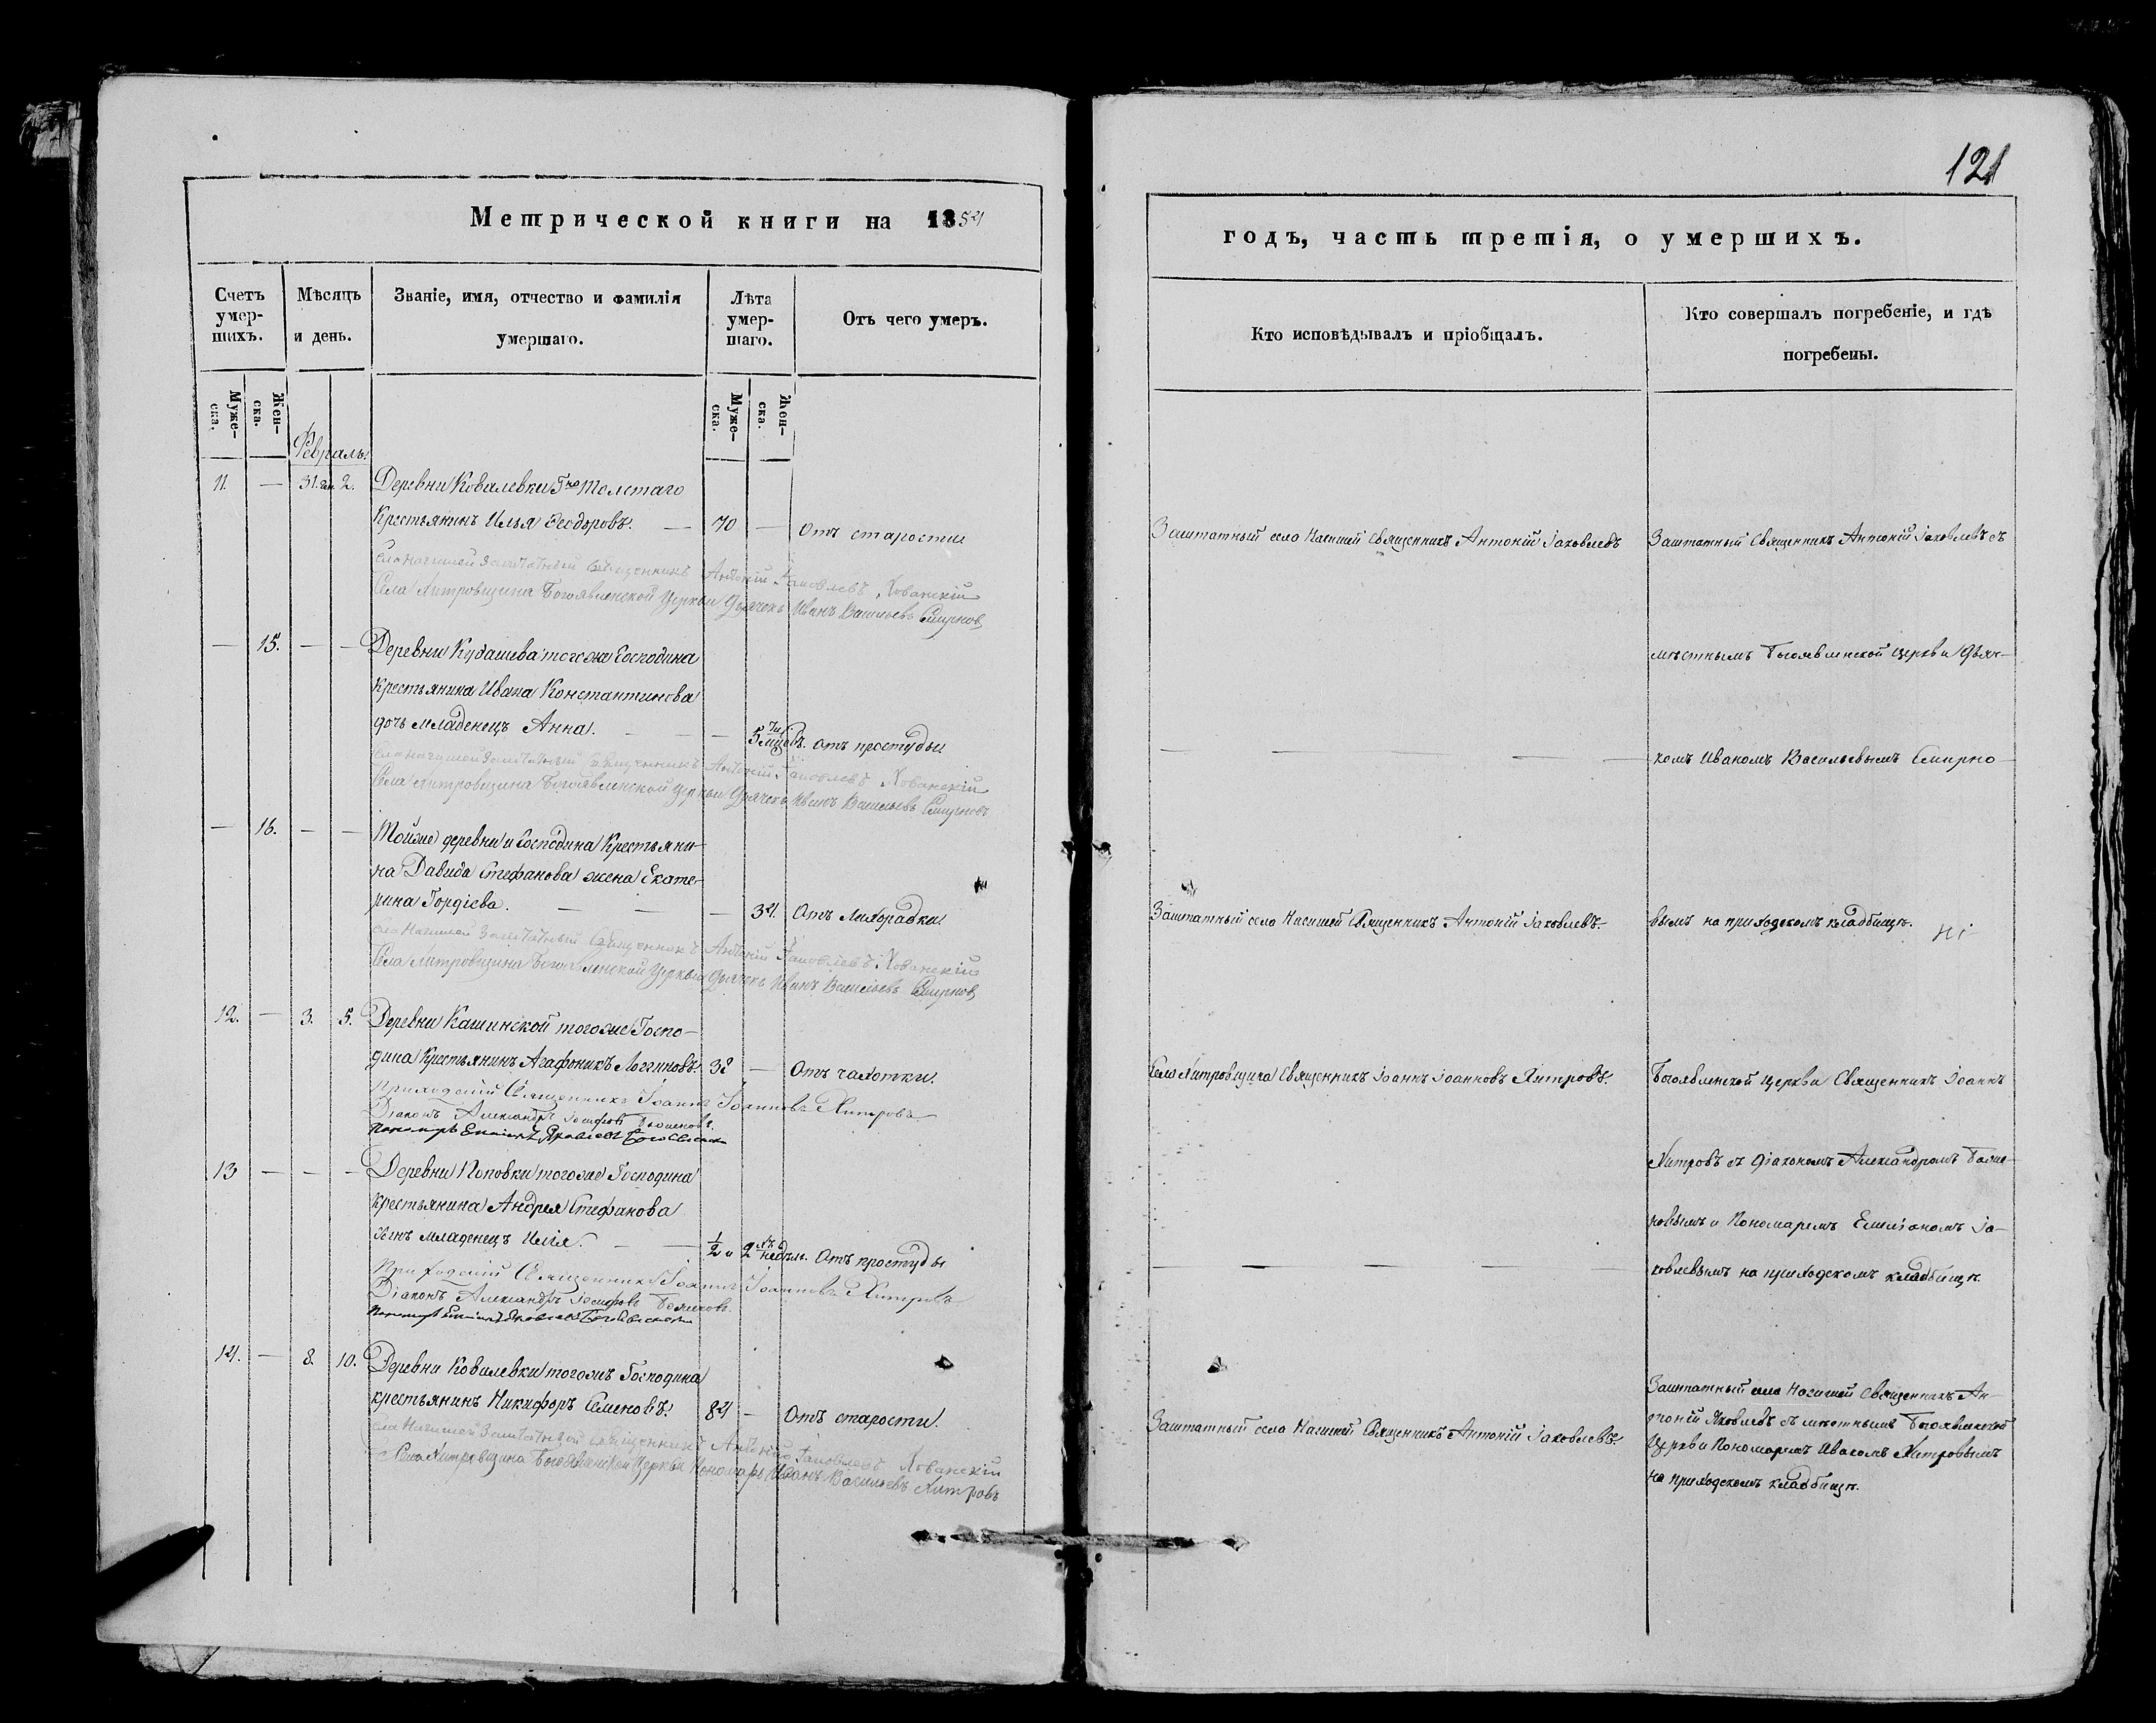 121
Метрической книги на 1854
Счетъ умер-шихъ.
Мѣсяцъ и день.
Званіе, имя, отчество и фамилія умершаго.
Лѣта умер-шаго.
Отъ чего умеръ.
Муже-ска.
Жен-ска.
Муже-ска.
Жен-ска.
Февраль.
11. — 31. ген. 2. Деревни Ковалевки Гна Толстаго
Крестьянинъ Илья Феодоровъ. — 70 — Отъ старости
села Заштатный Священникъ Антоній Іаковлевъ Хованскій
Села Хитровщина Богоявленской Церкви Дьячекъ Иванъ Васильевъ Смирнов
— 15. — — Деревни Кудашева того же Господина
крестьянина Ивана Константинова
дочь младенецъ Анна. — — — 5 мцовъ. отъ простуды
села Заштатный Священникъ Антоній Іаковлевъ Хованскій
Села Хитровщина Богоявленской Церкви Дьячекъ Иванъ Васильевъ Смирновъ
— 16. — — Тойже деревни и Господина Крестьяни-
на Давида Стефанова жена Екате-
рина Гордіева. — — — 34. Отъ лихорадки.
села Заштатный Священникъ Антоній Іаковлевъ Хованскій
Села Хитровщина Богоявленской Церкви Дьячекъ Иванъ Васильевъ Смирнов
12. — 3. 5. Деревни Кашинской тогоже Госпо-
дина Крестьянинъ Агафоникъ Логгиновъ. 38 — Отъ чахотки.
Приходскій Священникъ Іоаннъ Іоанновъ Хитровъ
Діаконъ Александръ Іосифовъ
Пономарь Яковлевъ
13 — — — Деревни Поповки тогоже Господина
крестьянина Андрея Стефанова
сынъ младенецъ Илія. — — 1/2 и 2 недѣл. Отъ простуды
Приходскій Священникъ Іоаннъ Іоанновъ Хитровъ
Діаконъ Александръ Іосифовъ
Пономарь
14. — 8. 10. Деревни Ковалевки тогожъ Господина
крестьянинъ Никифоръ Семеновъ. 84 — Отъ старости.
села Заштатный Священникъ Антоній Іаковлевъ Хованскій
Села Хитровщина Богоявленской Церкви Пономарь Иванъ Васильевъ Хитровъ
годъ, часть третія, о умершихъ.
Кто исповѣдывалъ и пріобщалъ.
Кто совершалъ погребеніе, и гдѣ погребены.
Заштатный села Священникъ Антоній Іаковлевъ
Заштатный Священникъ Антоній Іаковлевъ съ
мѣстнымъ Богоявленской церкви Дьяч-
— — — — — комъ Иваномъ Васильевымъ Смирно-
Заштатный села Священникъ Антоній Іаковлевъ.
вымъ на приходскомъ кладбищѣ.
Села Хитровщина Священникъ Іоаннъ Іоанновъ Хитровъ.
Богоявленской церкви Священникъ Іоаннъ
Хитровъ съ Діакономъ Александромъ
новымъ и Пономаремъ Іа-
— — — — — ковлевымъ на приходскомъ кладбищѣ.
Заштатный села Священникъ Антоній Іаковлевъ.
Заштатный села Священникъ Ан-
тоній Яковлевъ съ мѣстнымъ Богоявленской
Церкви Пономаремъ Иваномъ Хитровымъ
на приходскомъ кладбищѣ.